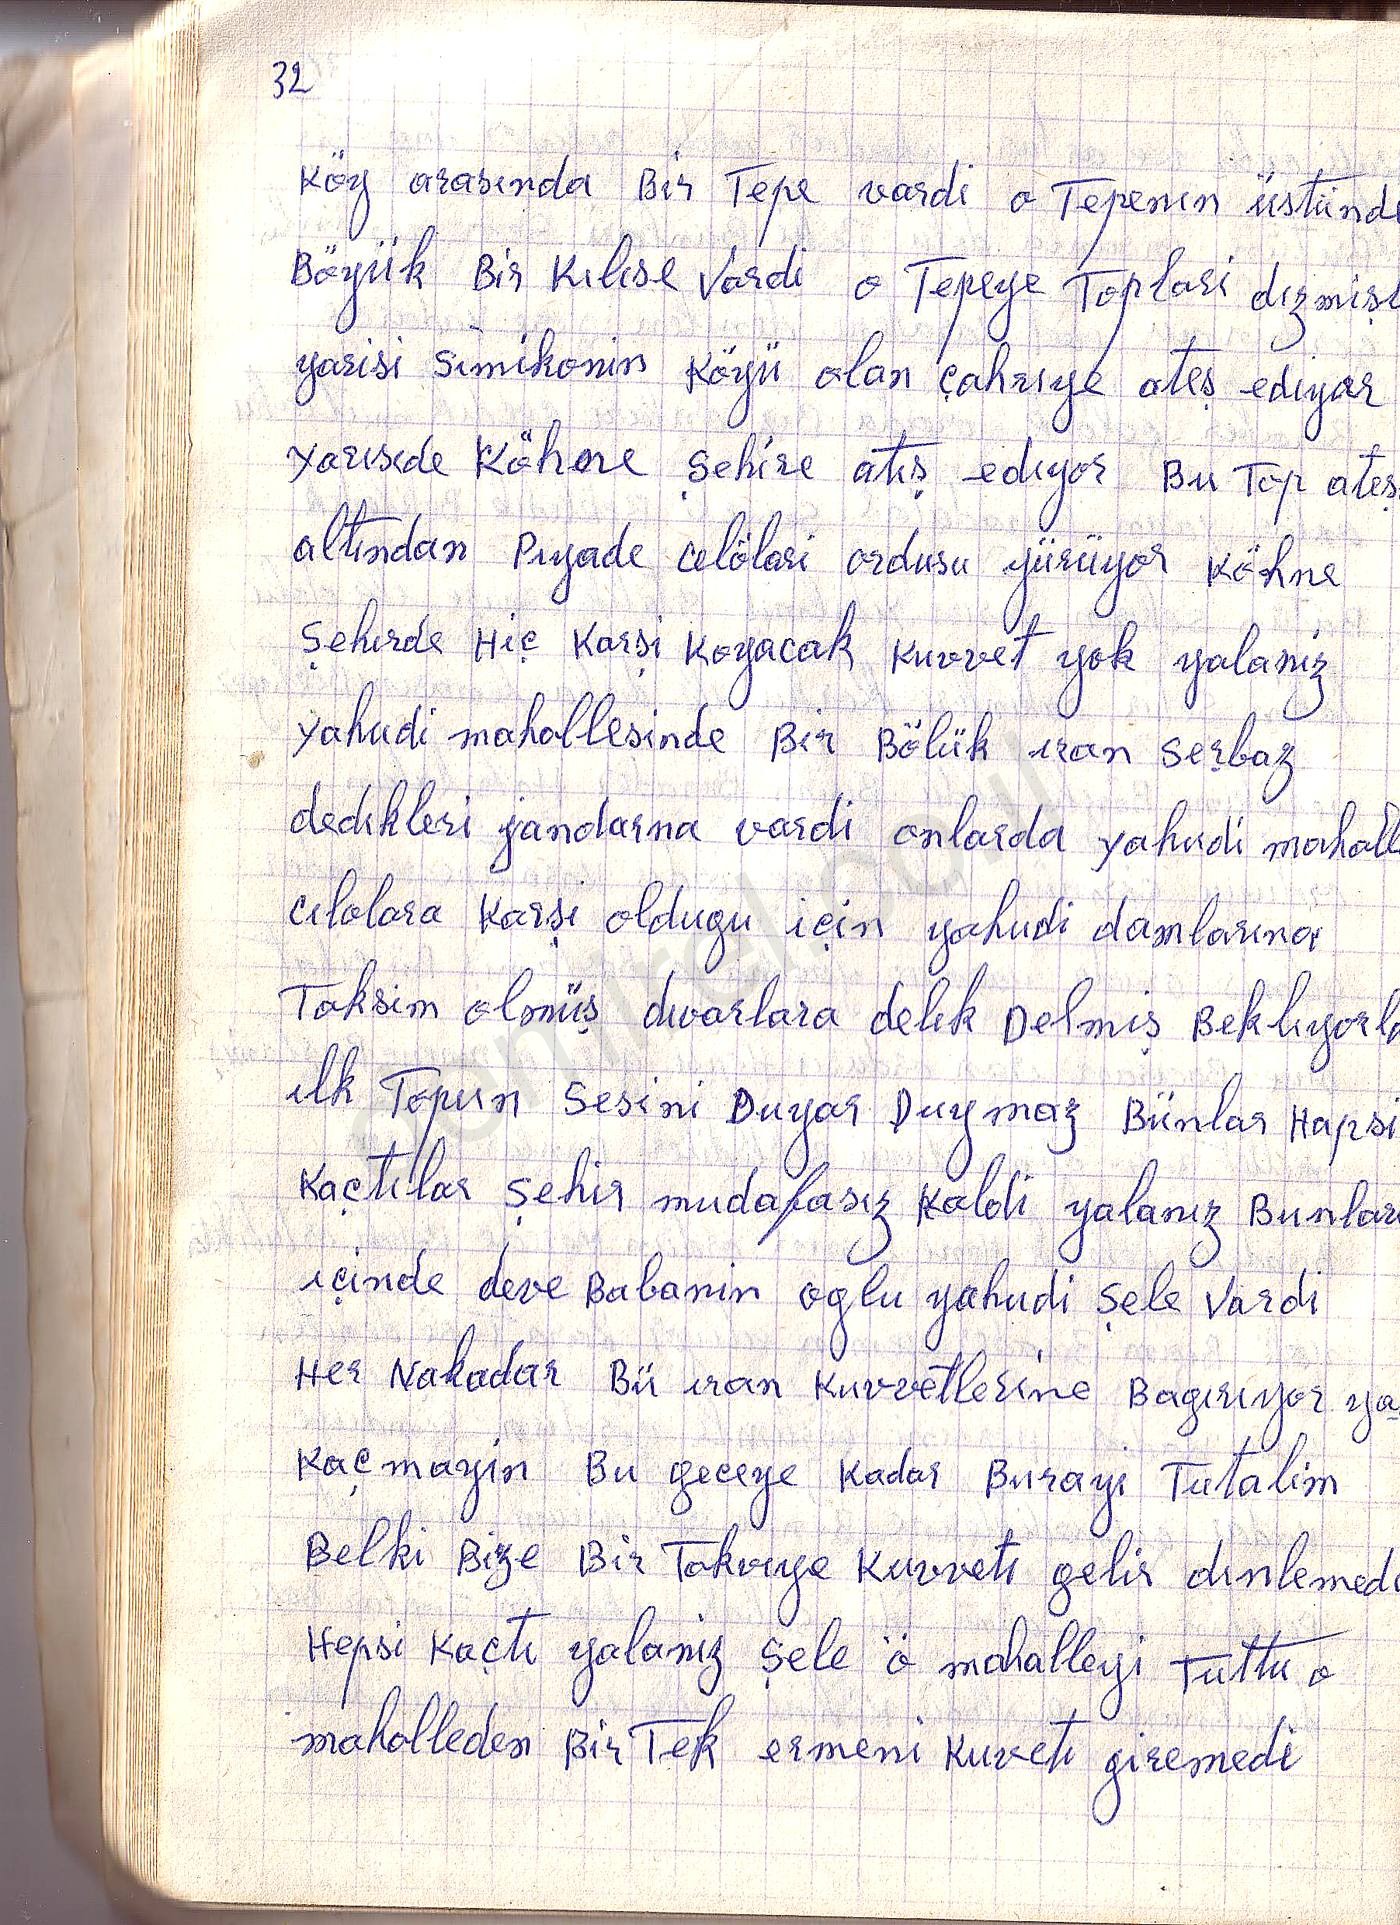 32
Köy arasında Bir Tepe vardi o Tepenın üstünd
Böyük Bir Kılıse Vardi o Tepeye Toplari dızmiş
yarisi Simikonin Köyü olan çahrıye ateş edıyor
Yarısıde Köhne Şehire atış edıyor Bu Top ateş
altından Pıyade celölari ordusu yürüyor Köhne
Şehırde Hiç Karşi Koyacak Kuvvet yok yalaniz
yahudi mahallesinde Bir Bölük ıran Serbaz
dedıkleri jandarna vardi onlarda yahudi mahall
cılolara Karşi oldugu için yahudi damlarına
Taksim olmüş dıvarlara delık Delmiş Beklıyorl
ılk Topun Sesini Duyar Duymaz Bünlar Hapsi
Kaçtılar Şehir mudafasız Kaldi yalanız Bunları
ıçinde deve Babanin oglu yahudi Şele Vardi
Her Nakadar Bü ıran Kuvvetlerine Bagırıyor ya
Kaçmayin Bu geceye Kadar Burayi Tutalim
Belki Bize Bir Takvıye Kuvvetı gelir dınlemed
Hepsi Kaçtı yalaniz Şele ö mahalleyi Tuttu o
mahalleden Bir Tek ermeni Kuvetı giremedi
demirel.pol